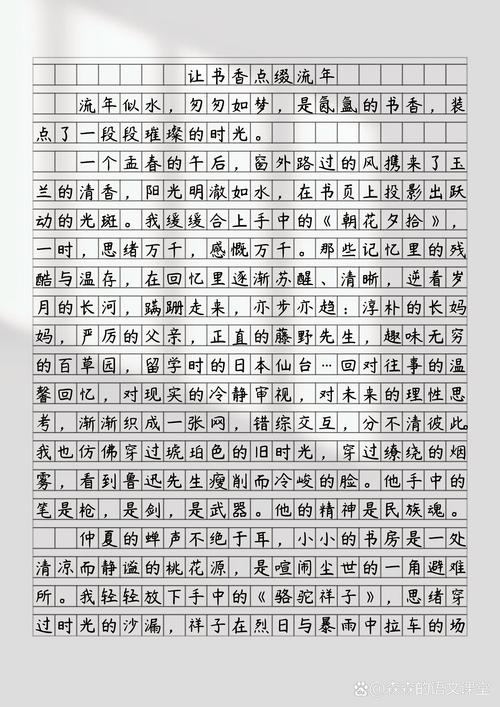 让书香点缀流年
流年似水，匆匆如梦，是氤氲的书香，装
点了一段段璀璨的时光。
一个孟春的午后，窗外路过的风携来了玉
兰的清香，阳光明澈如水，在书页上投影出跃
动的光斑。我缓缓合上手中的《朝花夕拾》，
一时，思绪万千，感慨万千。那些记忆里的残
酷与温存，在回忆里逐渐苏醒、清晰，逆着岁
月的长河，蹒跚走来，亦步亦趋：淳朴的长妈
妈，严厉的父亲，正直的藤野先生，趣味无穷
的百草园，留学时的日本仙台…回对往事的温
馨回忆，对现实的冷静审视，对未来的理性思
考，渐渐织成一张网，错综交互，分不清彼此。
我也仿佛穿过琥珀色的旧时光，穿过缭绕的烟
雾，看到鲁迅先生瘦削而冷峻的脸。他手中的
笔是枪，是剑，是武器。他的精神是民族魂。
仲夏的蝉声不绝于耳，小小的书房是一处
清凉而静谧的桃花源，是喧闹尘世的一角避难
所。我轻轻放下手中的《骆驼祥子》，思绪穿
过时光的沙漏，祥子在烈日与暴雨中拉车的场
森森的语文课堂